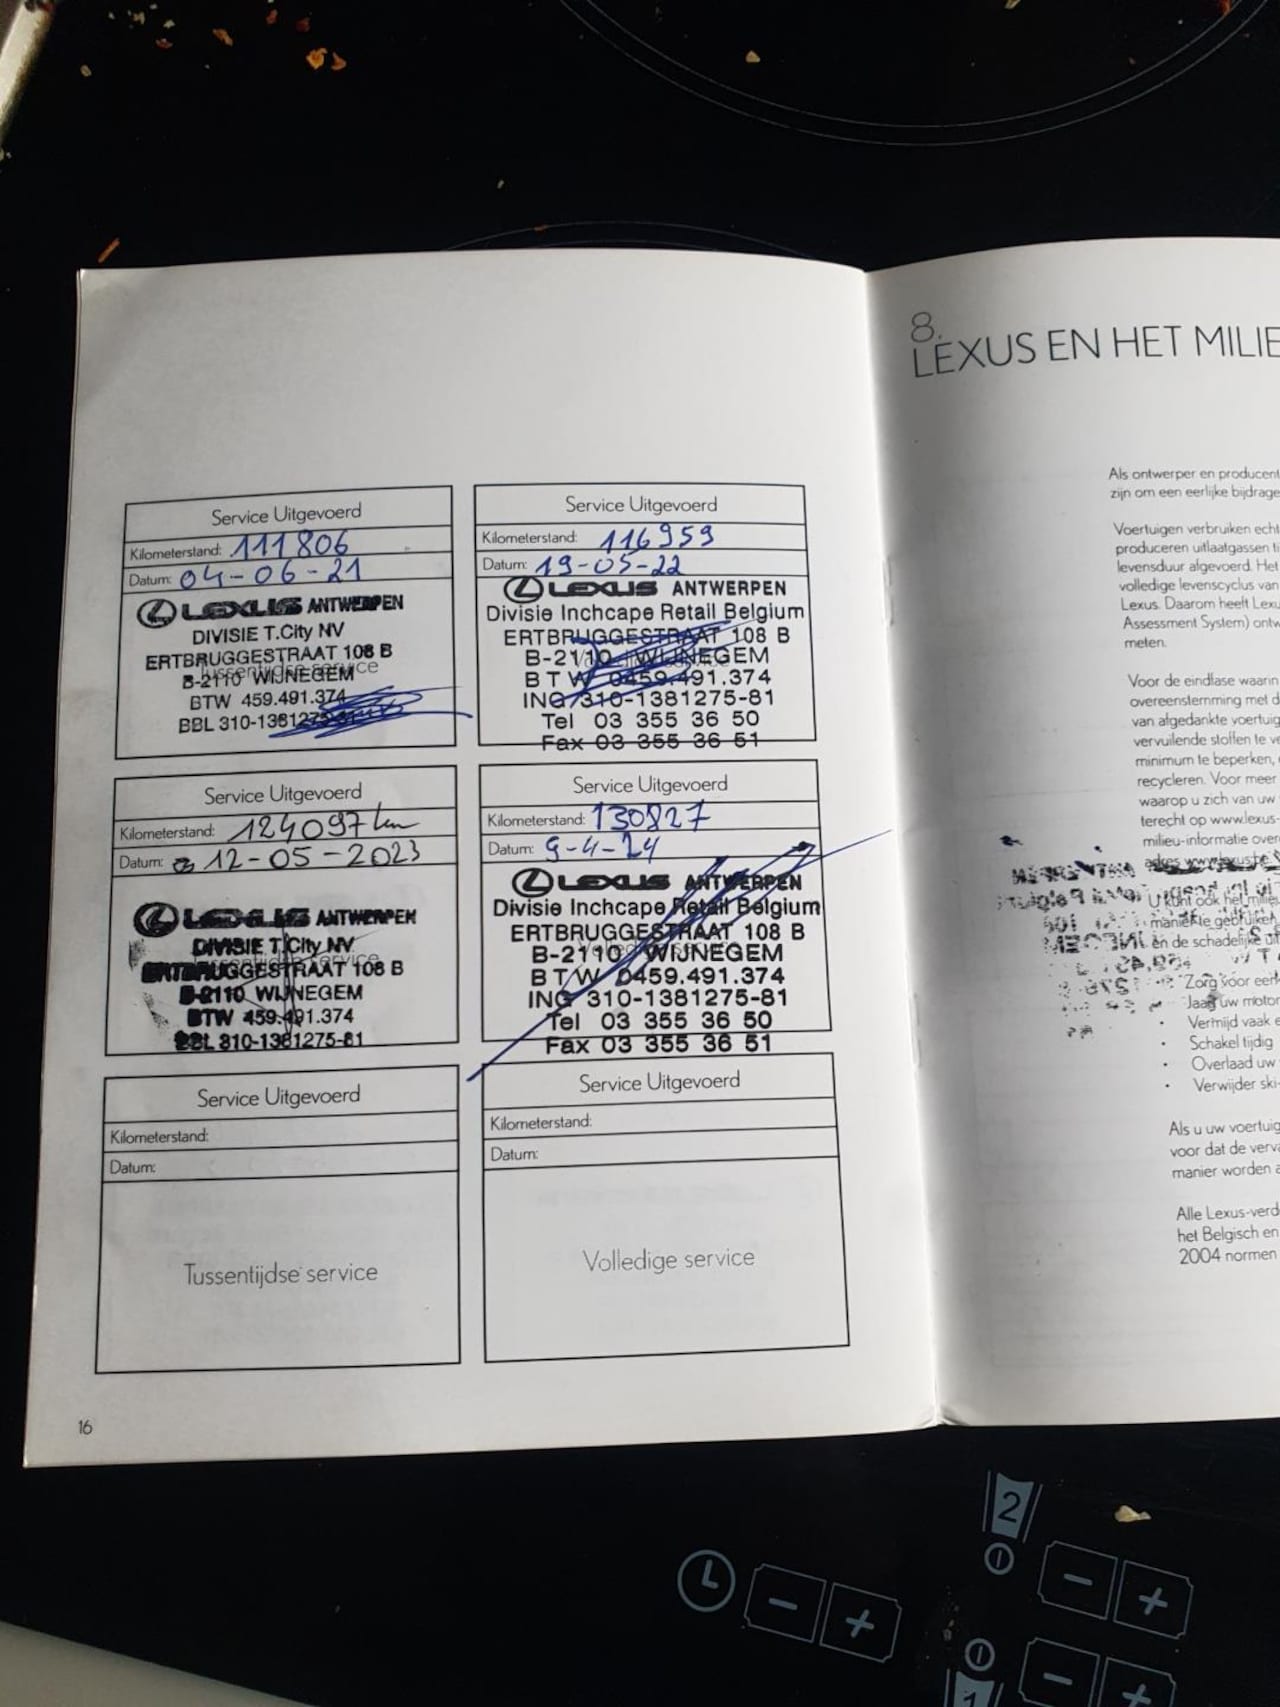 Service Uitgevoerd
Kilometerstand: 111806
Datum: 04-06-21
LEXUS ANTWERPEN
DIVISIE T.City NV
ERTBRUGGESTRAAT 108 B
Tussentijdse service
B-2110 WIJNEGEM
BTW 459.491.374
BBL 310-1381275-81
Service Uitgevoerd
Kilometerstand: 116959
Datum: 19-05-22
LEXUS ANTWERPEN
Divisie Inchcape Retail Belgium
ERTBRUGGESTRAAT 108 B
B-2110 WIJNEGEM
BTW 0459.491.374
ING 310-1381275-81
Tel 03 355 36 50
Fax 03 355 36 51
Service Uitgevoerd
Kilometerstand: 124097 km
Datum: 12-05-2023
LEXUS ANTWERPEN
DIVISIE T.City NV
Tussentijdse service
ERTBRUGGESTRAAT 108 B
B-2110 WIJNEGEM
BTW 459.491.374
BBL 310-1381275-81
Service Uitgevoerd
Kilometerstand: 130827
Datum: 9-4-24
LEXUS ANTWERPEN
Divisie Inchcape Retail Belgium
ERTBRUGGESTRAAT 108 B
Volledige service
B-2110 WIJNEGEM
BTW 0459.491.374
ING 310-1381275-81
Tel 03 355 36 50
Fax 03 355 36 51
Service Uitgevoerd
Kilometerstand:
Datum:
Tussentijdse service
Service Uitgevoerd
Kilometerstand:
Datum:
Volledige service
16
8.
LEXUS EN HET MILIE
Als ontwerper en producent
zijn om een eerlijke bijdrage
Voertuigen verbruiken echt
produceren uitlaatgassen ti
levensduur afgevoerd. Het
volledige levenscyclus van
Lexus. Daarom heeft Lexu
Assessment System) ontw
meten.
Voor de eindfase waarin
overeenstemming met d
van afgedankte voertuig
vervuilende stoffen te ve
minimum te beperken,
recycleren. Voor meer
waarop u zich van uw
terecht op www.lexus-
milieu-informatie over
adres www.lexus.be
U kunt ook het milie
manier te gebruiken
en de schadelijke uit
Zorg voor een
Jaag uw motor
• Vermijd vaak e
• Schakel tijdig
• Overlaad uw
• Verwijder ski-
Als u uw voertuig
voor dat de verva
manier worden a
Alle Lexus-verd
het Belgisch en
2004 normen
2
1